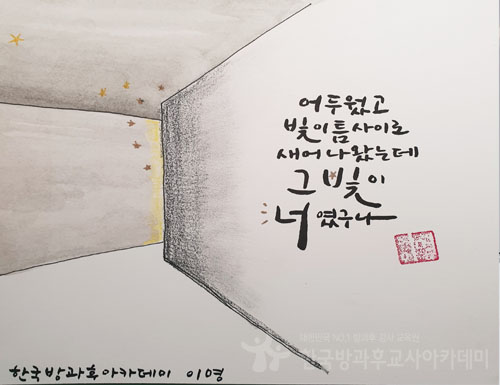 어두웠고
빛이 틈 사이로
새어 나왔는데
그 빛이
너였구나
대한민국 NO.1 방과후 강사 교육원
한국방과후교사아카데미
한국방과후아카데미 이영